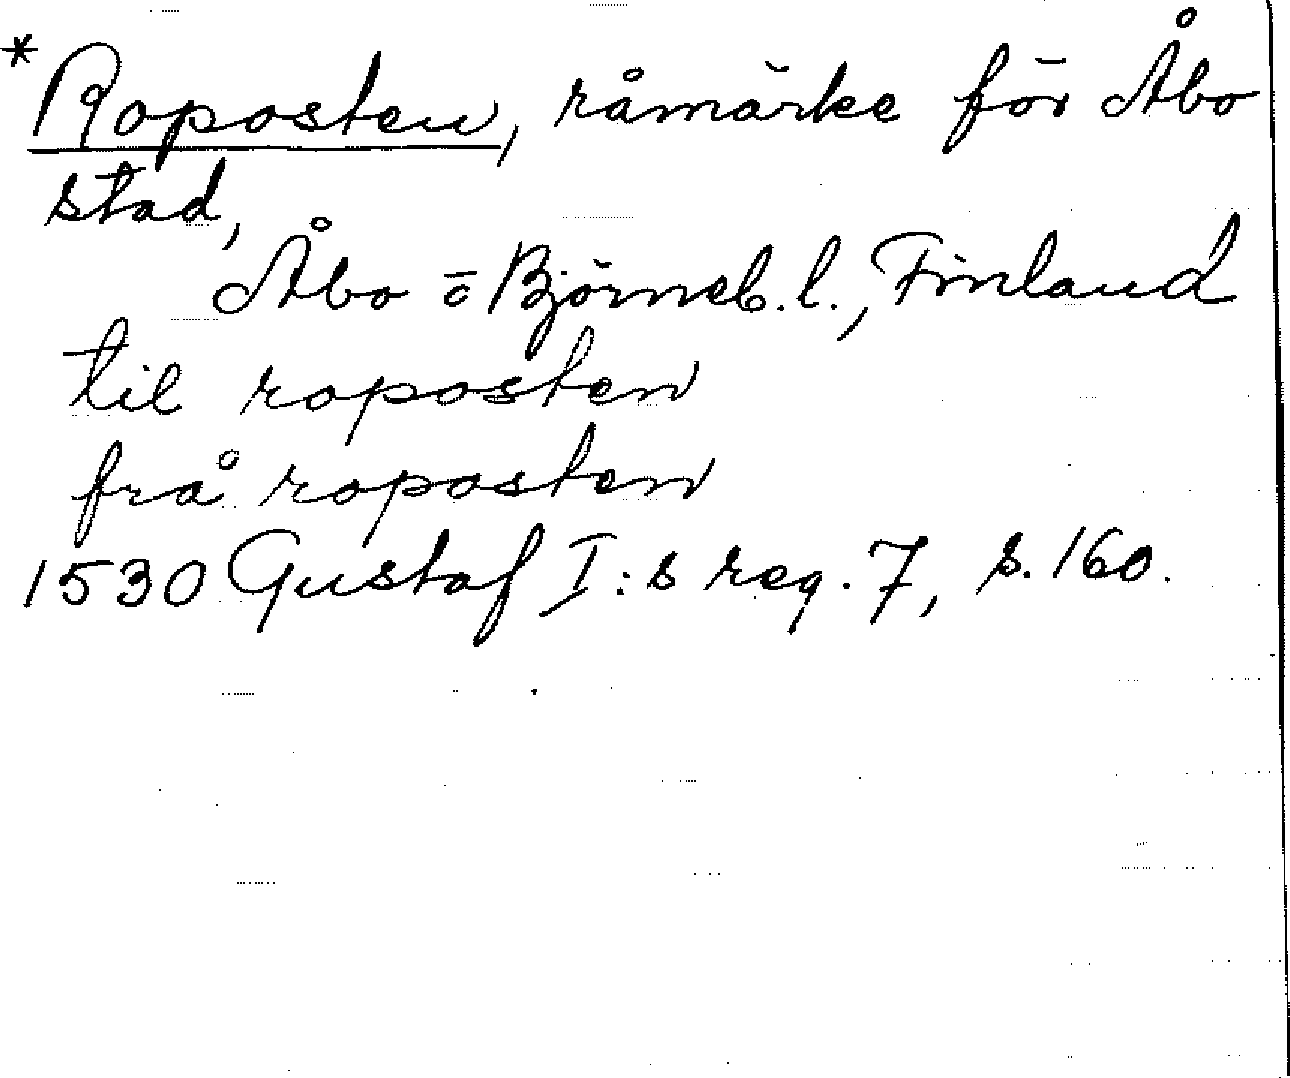 *Roposten, råmärke för Åbo
stad,
Åbo o Björneb. l., Finland
til roposten
frå roposten
1530 Gustaf I:s reg. 7, s. 160.